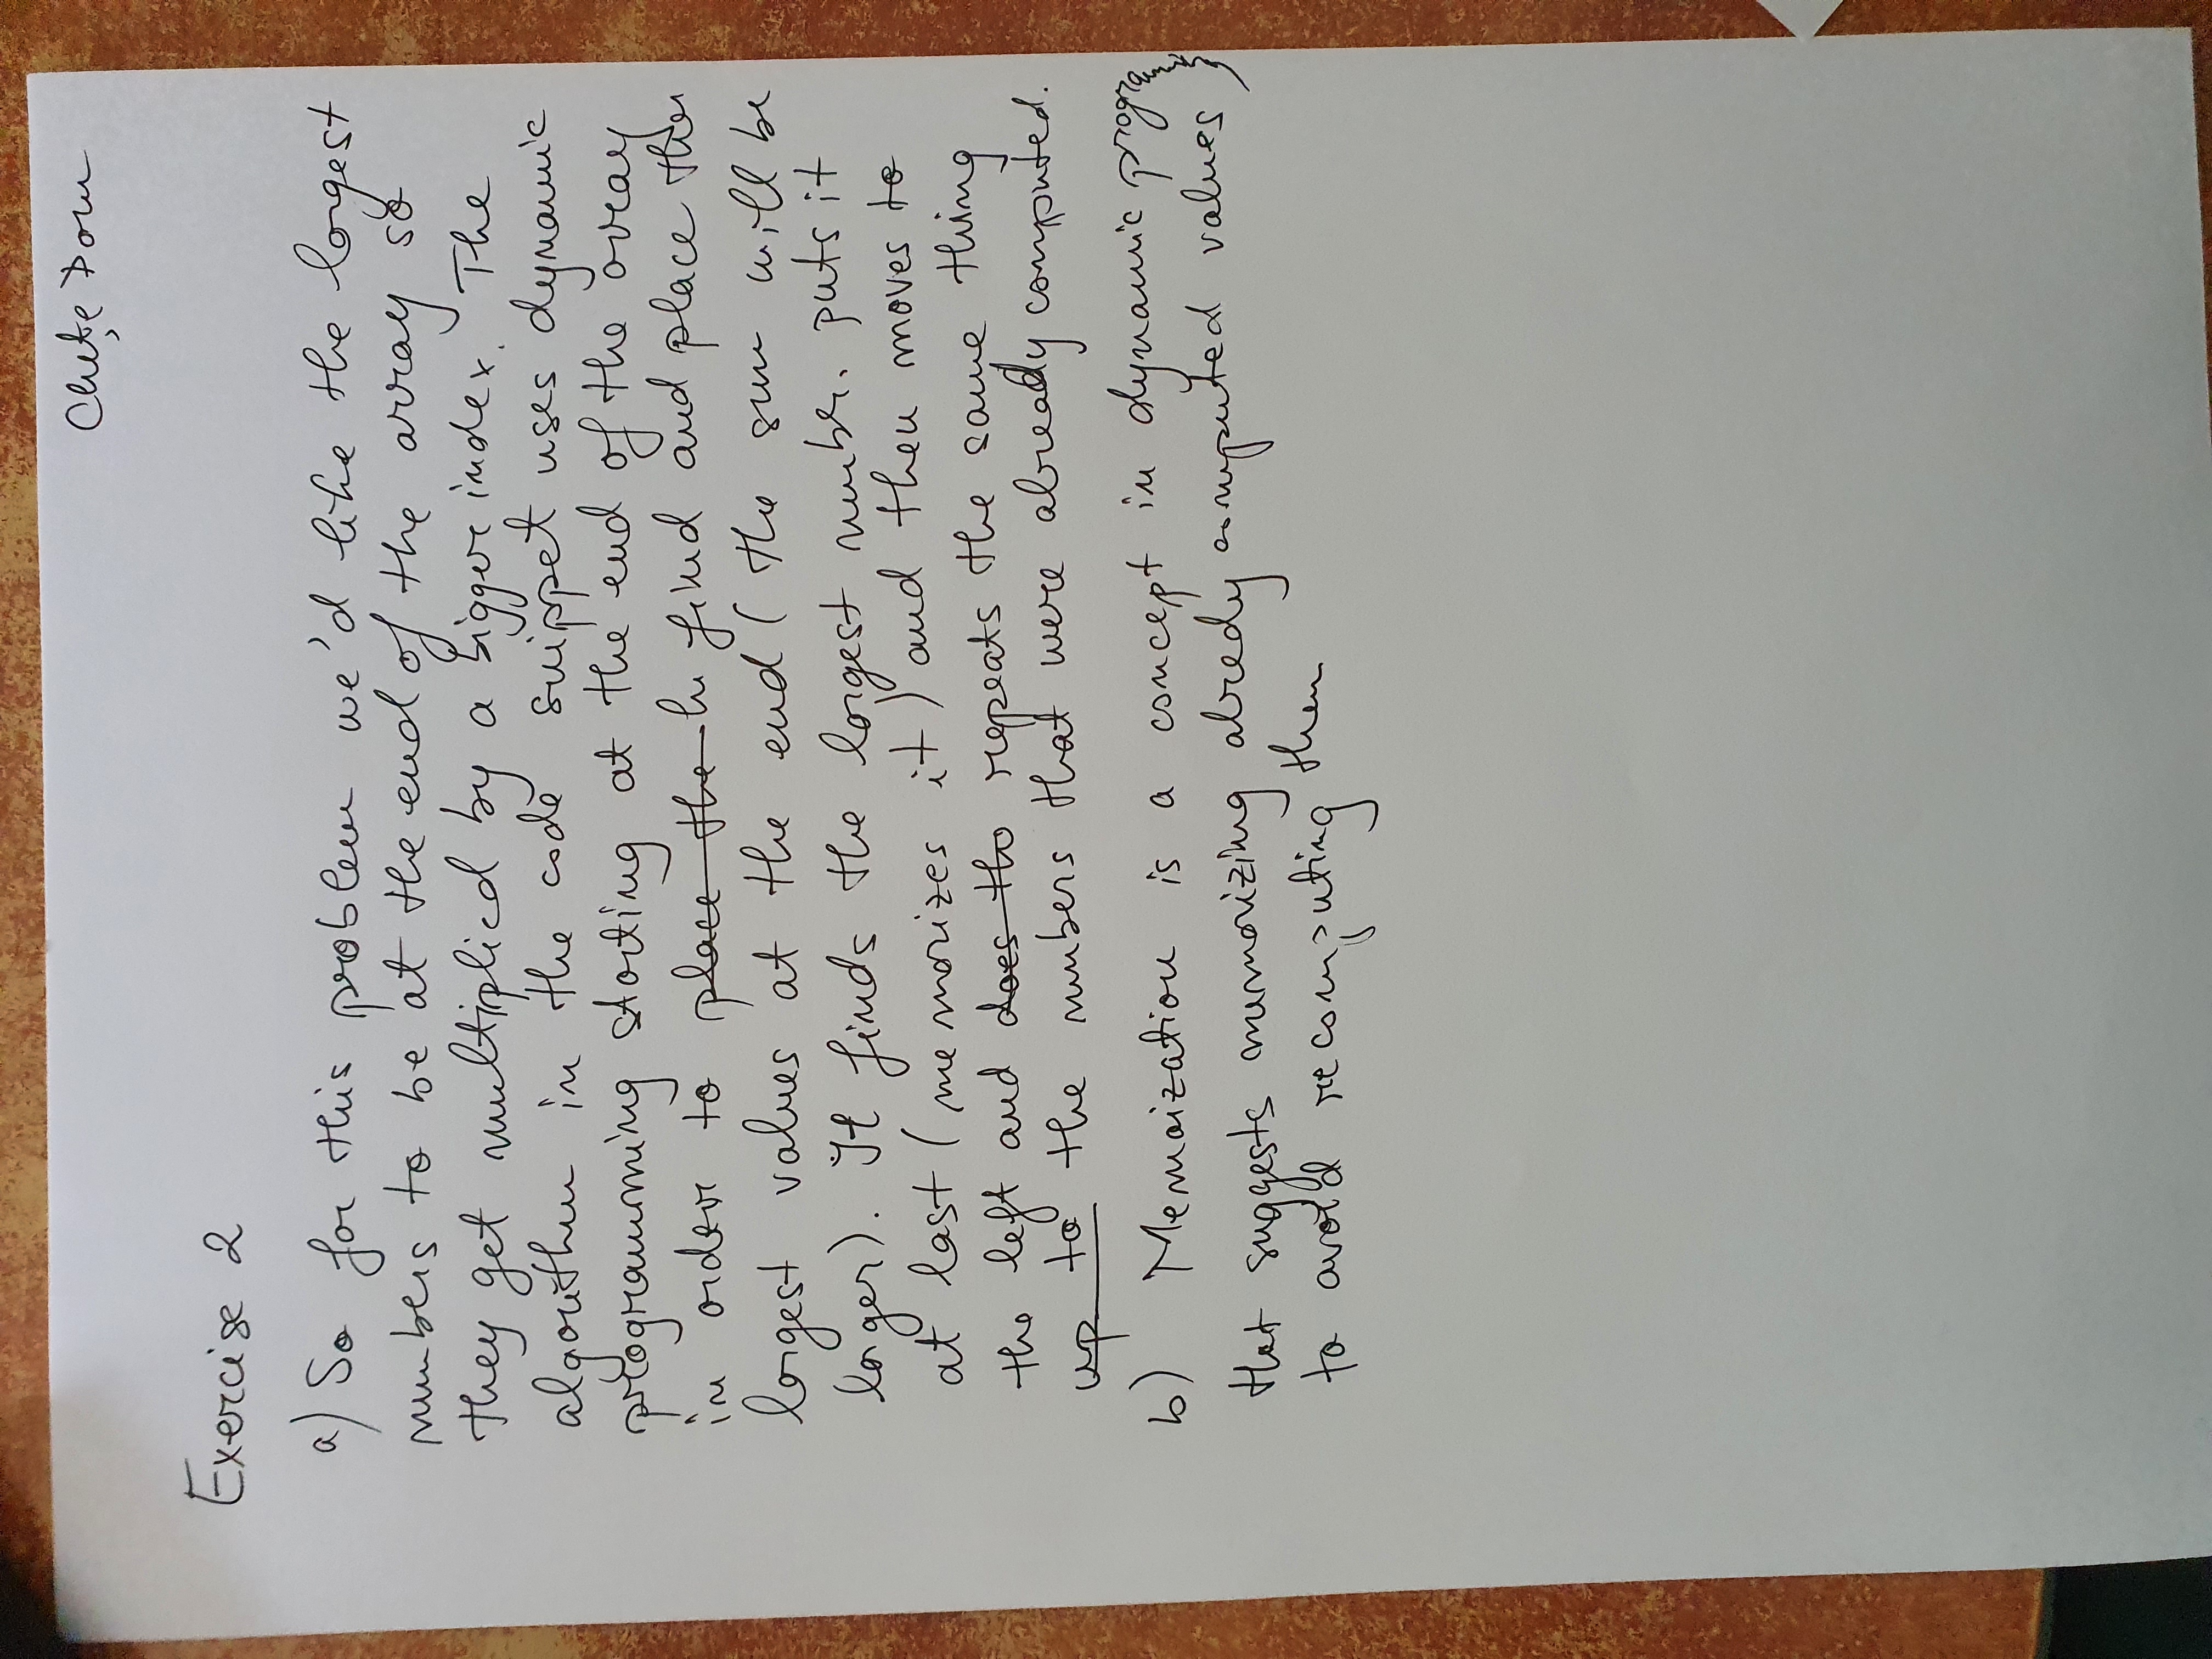 Chețe Doru
Exercise 2
a) So for this problem we'd like the largest
numbers to be at the end of the array so
they get multiplied by a bigger index. The
algorithm in the code snippet uses dynamic
programming starting at the end of the array
in order to place the find and place the
largest values at the end (the sum will be
larger). It finds the largest number. puts it
at last (memorizes it) and then moves to
the left and does the repeats the same thing
up to the numbers that were already computed.
b) Memoization is a concept in dynamic programming
that suggests memorizing alredy computed values
to avoid recomputing them